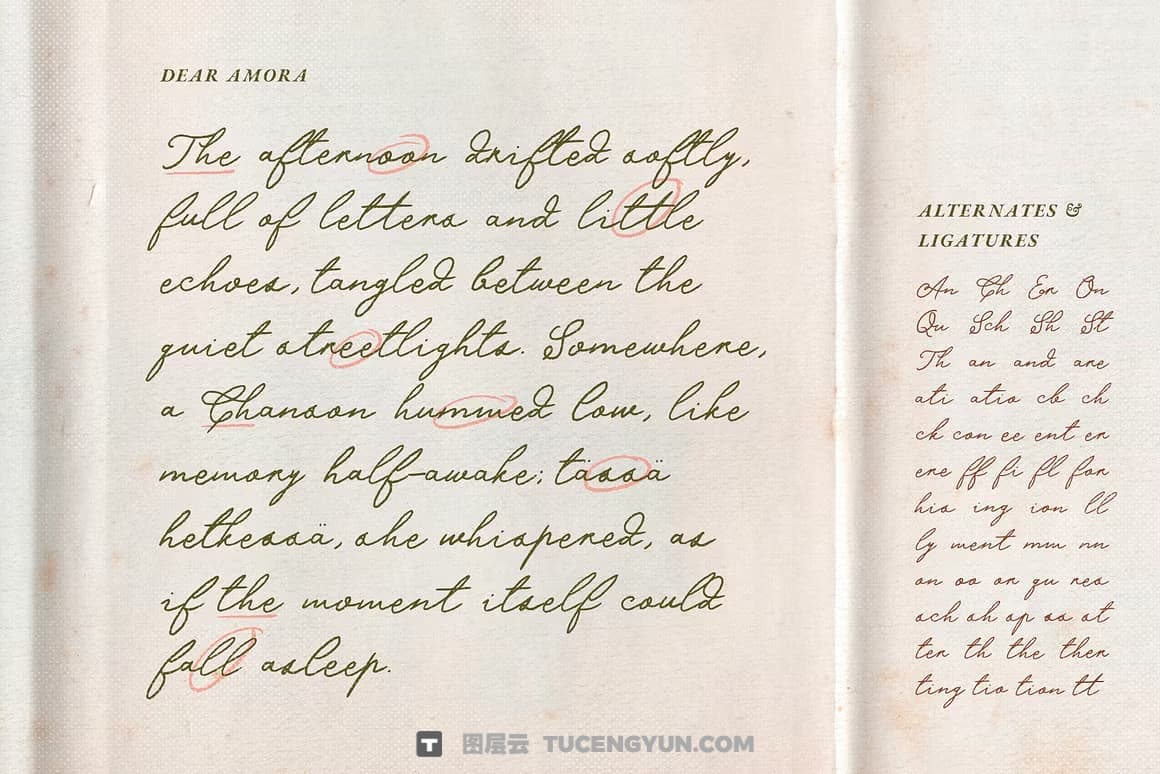 DEAR AMORA
The afternoon drifted softly,
full of letters and little
echoes, tangled between the
quiet streetlights. Somewhere,
a Chanson hummed low, like
memory half-awake; tässä
hetkessä, she whispered, as
if the moment itself could
fall asleep.
ALTERNATES &
LIGATURES
An Ch Er On
Qu Sch Sh St
Th an and are
ati atio cb ch
ck con ee ent er
ere ff fi fl for
his ing ion ll
ly ment mm nn
on oo or qu res
sch sh sp ss st
ter th the ther
ting tio tion tt
图层云 TUCENGYUN.COM